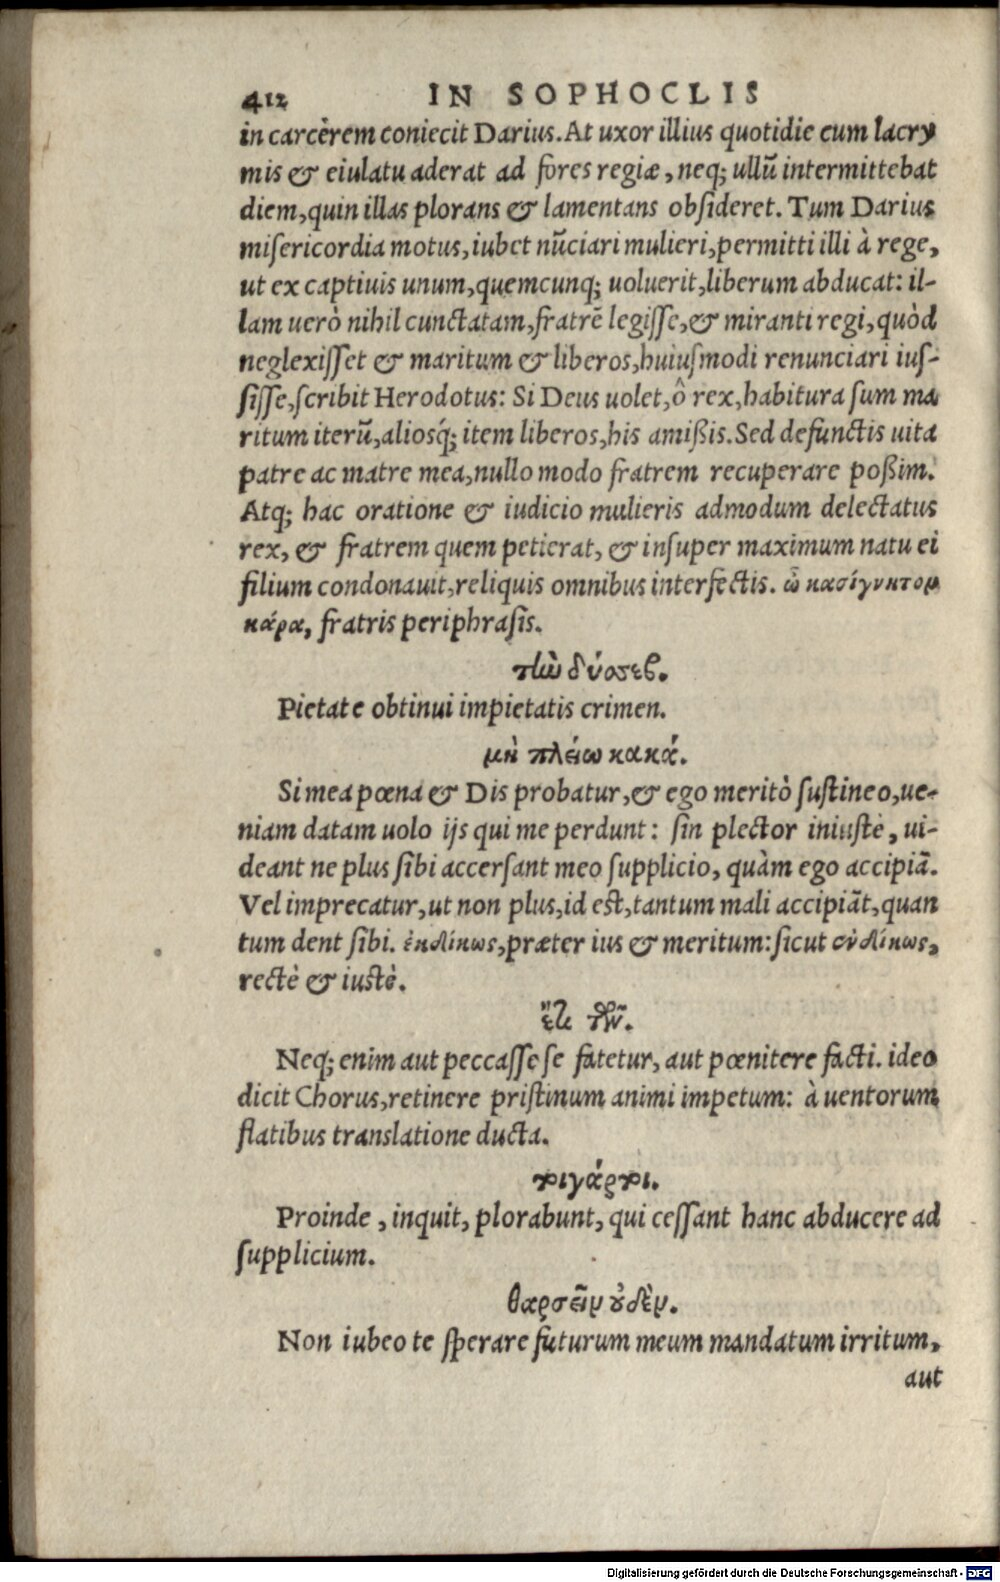 412 IN SOPHOCLIS
in carcèrem coniecit Darius. At uxor illius quotidie cum lacry
mis & eiulatu aderat ad fores regiæ, neq; ullũ intermittebat
diem, quin illas plorans & lamentans obsideret. Tum Darius
misericordia motus, iubet nũciari mulieri, permitti illi à rege,
ut ex captiuis unum, quemcunq; uoluerit, liberum abducat: il-
lam uerò nihil cunctatam, fratrẽ legisse, & miranti regi, quòd
neglexisset & maritum & liberos, huiusmodi renunciari ius-
sisse, scribit Herodotus: Si Deus uolet, ô rex, habitura sum ma
ritum iterũ, aliosq́; item liberos, his amißis. Sed defunctis uita
patre ac matre mea, nullo modo fratrem recuperare poßim.
Atq; hac oratione & iudicio mulieris admodum delectatus
rex, & fratrem quem petierat, & insuper maximum natu ei
filium condonauit, reliquis omnibus interfectis. ὦ κασίγνητον
κάρα, fratris periphrasis.
τὴν δύσσεβ.
Pietate obtinui impietatis crimen.
μὴ πλείω κακά.
Si mea pœna & Dis probatur, & ego meritò sustineo, ue-
niam datam uolo ijs qui me perdunt: sin plector iniustè, ui-
deant ne plus sibi accersant meo supplicio, quàm ego accipiã.
Vel imprecatur, ut non plus, id est, tantum mali accipiãt, quan
tum dent sibi. ἐκδίκως, præter ius & meritum: sicut ἐνδίκως,
rectè & iustè.
ἔτι τῶν.
Neq; enim aut peccasse se fatetur, aut pœnitere facti. ideo
dicit Chorus, retinere pristinum animi impetum: à uentorum
flatibus translatione ducta.
τοιγάρτοι.
Proinde, inquit, plorabunt, qui cessant hanc abducere ad
supplicium.
θαρσεῖν οὐδὲν.
Non iubeo te sperare futurum meum mandatum irritum,
aut
Digitalisierung gefördert durch die Deutsche Forschungsgemeinschaft - DFG